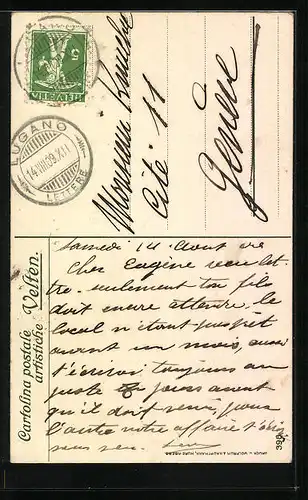 HELVETIA
5
LUGANO
14.VIII.09.XII
LETTERE
Monsieur
Cité 11
Genève
Cartolina postale
artistiche Velten.
Samedi 14 Août
Cher Eugène reçu let-
tre seulement ton fils
doit encore attendre le
local n'étant pas prêt
avant un mois, aussi
t'écrirai toujours au
juste jours avant
qu'il doit venir, pour
l'autre notre affaire t'écris
sous peu.
390